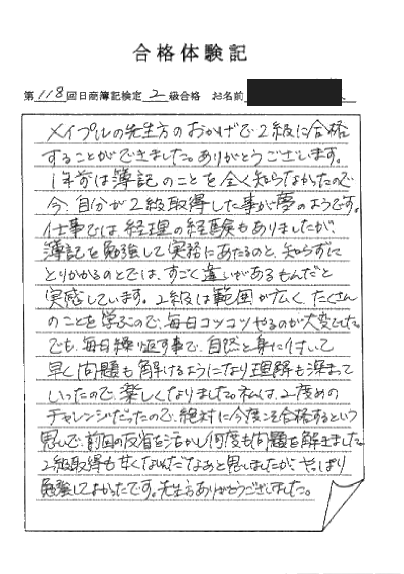 合格体験記
第118回日商簿記検定 2級合格 お名前
メイプルの先生方のおかげで2級に合格
することができました。ありがとうございます。
1年前は簿記のことを全く知らなかったので
今、自分が2級取得した事が夢のようです。
仕事では経理の経験もありましたが、
簿記を勉強して実務にあたるのと、知らずに
とりかかるのとでは、すごく違いがあるもんだと
実感しています。2級は範囲が広く、たくさん
のことを学ぶので、毎日コツコツやるのが大変でした。
でも、毎日繰り返す事で、自然と身に付いて
早く問題も解けるようになり理解も深まって
いったので、楽しくなりました。私は、2度めの
チャレンジだったので、絶対に今度こそ合格するという
思いで、前回の反省を活かし何度も問題を解きました。
2級取得も甘くないんだなあと思いましたが、やっぱり
勉強してよかったです。先生方ありがとうございました。